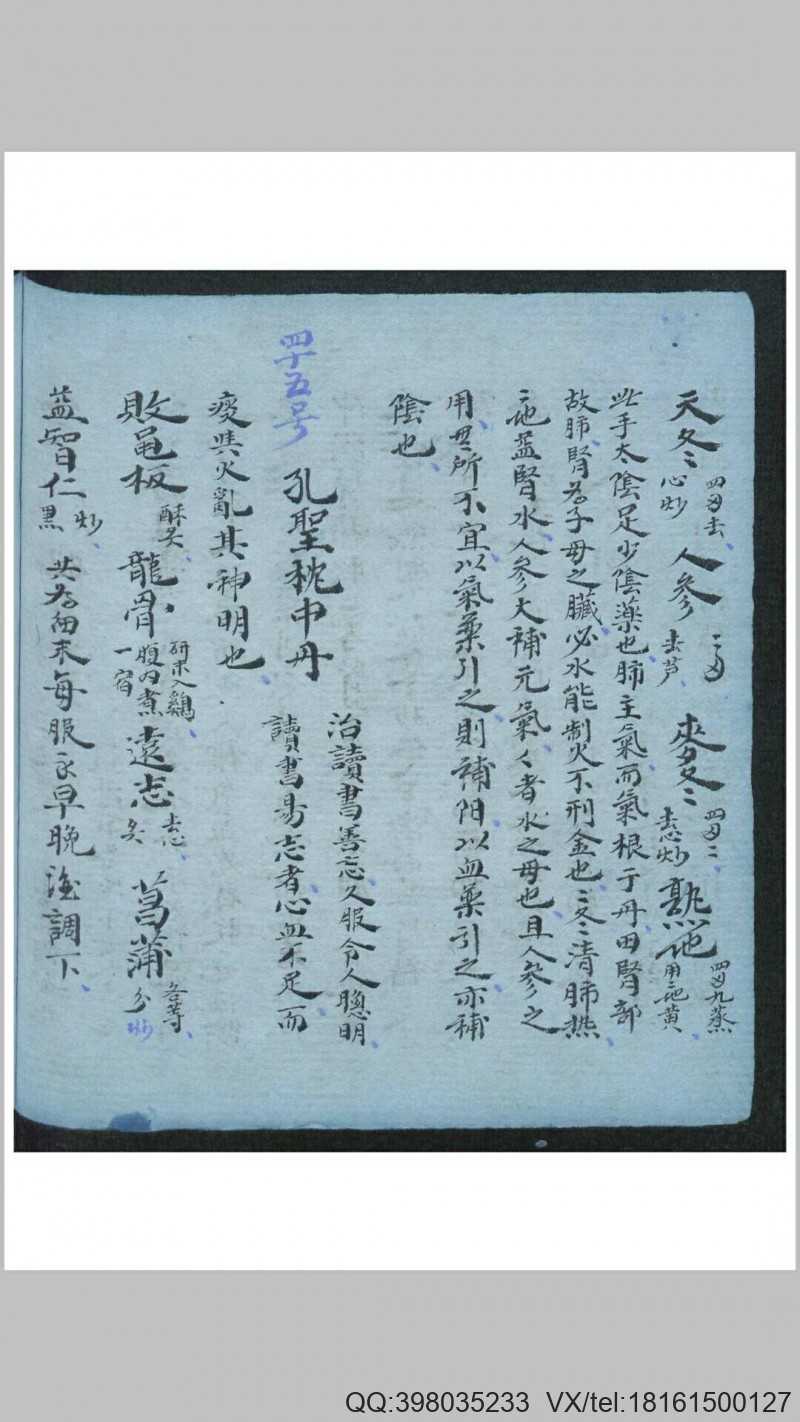 天冬 四両去心炒 人参 二両去芦 麥冬 四両去心炒 熟地 四両九蒸用地黄
此手太陰足少陰藥也肺主氣而氣根于丹田腎部
故肺腎為子母之臟必水能制火不刑金也二冬清肺热
二地益腎水人参大補元氣々者水之母也且人参之
用無所不宜以氣薬引之則補阳以血薬引之亦補
陰也
四十五号 孔聖枕中丹 治讀書善忘久服令人聰明
讀書易忘者心血不足而
痰與火亂其神明也
敗龟板 酥炙 龍骨 研末入鷄腹内煮一宿 遠志 去心炙 菖蒲 各等分 炒
益智仁 炒黑 共为細末每服 早晚 調下
QQ:398035233 VX/tel:18161500127